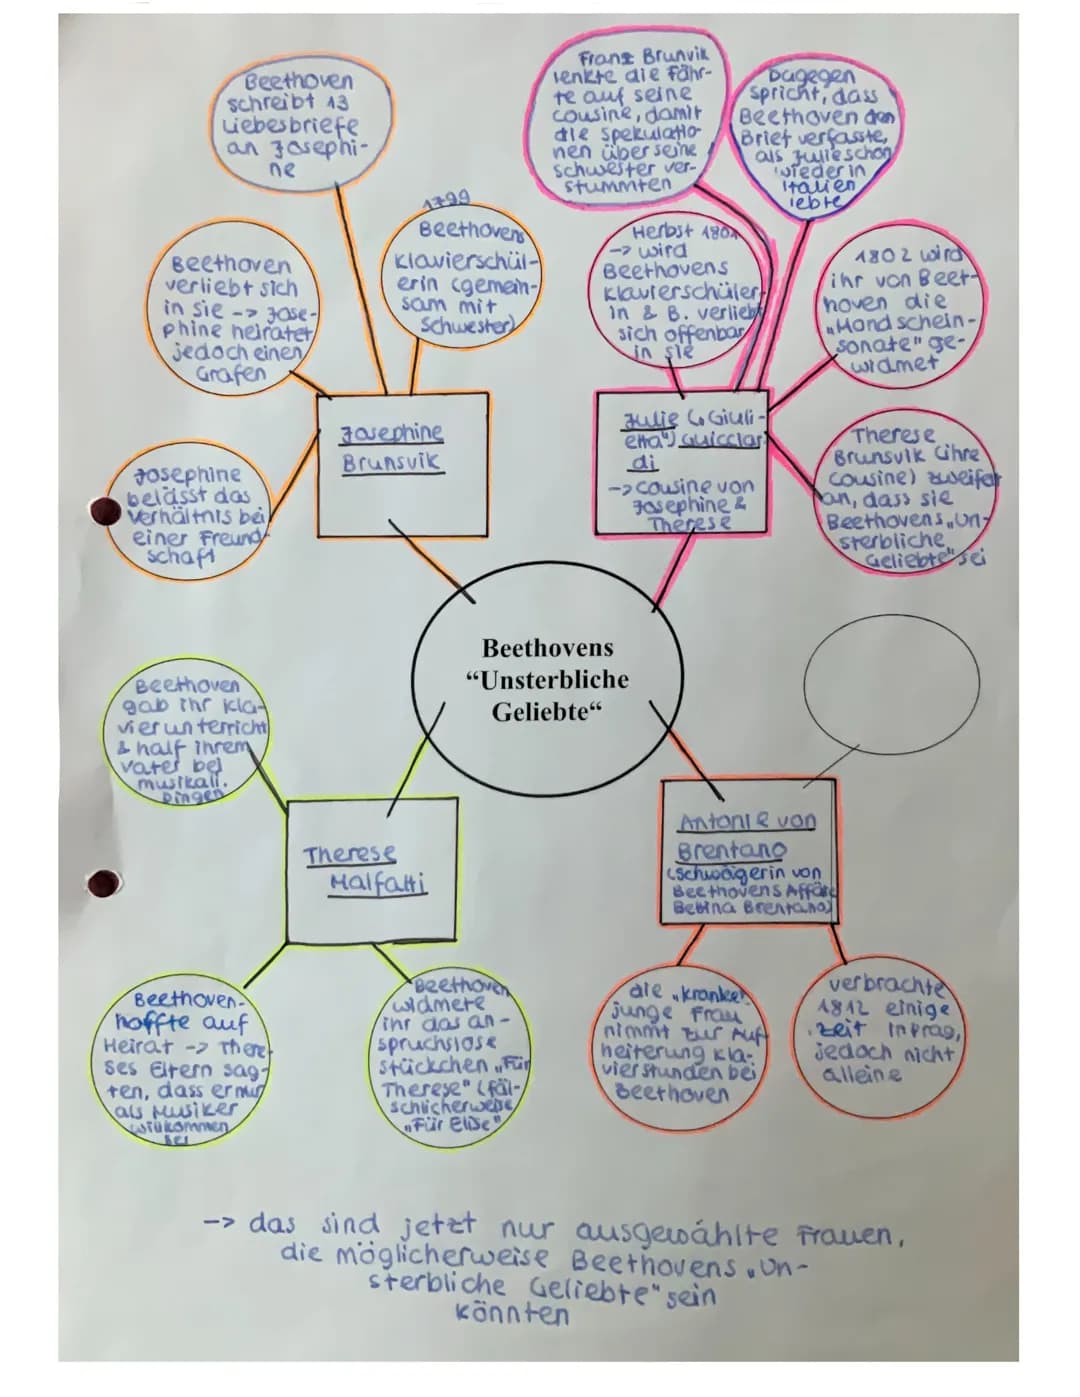 Beethoven
schreibt 13
Liebesbriefe
an Josephi-
ne
1799
Beethovens
Klavierschül-
erin (gemein-
sam mit
Schwester)
Beethoven
verliebt sich
in sie -> Jose-
phine heiratet
jedoch einen
Grafen
Josephine
belässt das
Verhältnis bei
einer Freund-
schaft
Josephine
Brunsvik
Franz Brunvik
lenkte die Fähr-
te auf seine
Cousine, damit
die Spekulatio-
nen über seine
Schwester ver-
stummten
Dagegen
spricht, dass
Beethoven den
Brief verfasste,
als Julie schon
wieder in
Italien
lebte
Herbst 1801
-> wird
Beethovens
Klavierschüler-
in & B. verliebt
sich offenbar
in sie
1802 wird
ihr von Beet-
hoven die
„Mondschein-
sonate" ge-
widmet
Therese
Brunsvik (ihre
Cousine) zweifelt
an, dass sie
Beethovens „Un-
sterbliche
Geliebte" sei
Julie („Giuli-
etta") Guicciar
di
-> Cousine von
Josephine &
Therese
Beethovens
“Unsterbliche
Geliebte“
Beethoven
gab ihr Kla-
vierunterricht
& half ihrem
Vater bei
musikali.
Dingen
Therese
Malfatti
Beethoven
hoffte auf
Heirat -> There-
ses Eltern sag-
ten, dass er nur
als Musiker
willkommen
sei
Beethoven
widmete
ihr das an-
spruchslose
Stückchen „Für
Therese" (fäl-
schlicherweise
„Für Elise"
Antonie von
Brentano
(Schwägerin von
Beethovens Affäre
Bettina Brentano)
die „kranke"
junge Frau
nimmt zur Auf-
heiterung Kla-
vierstunden bei
Beethoven
verbrachte
1812 einige
Zeit in Prag,
jedoch nicht
alleine
-> das sind jetzt nur ausgewählte Frauen,
die möglicherweise Beethovens „Un-
sterbliche Geliebte" sein
könnten